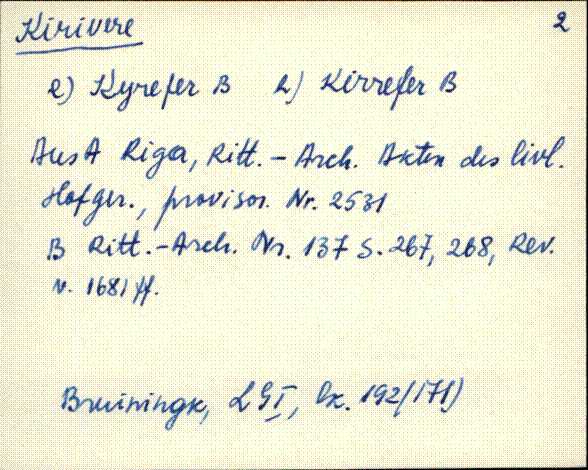 Kirivere 2
e) Kyrefer B h) Kirrefer B
Aus A Riga, Ritt.-Arch. Akten des livl.
Hofger., provisor. Nr. 2531
B Ritt.-Arch. Nr. 137 S. 267, 268, Rev.
v. 1681 ff.
Bruiningk, LGI, lk. 192/171)